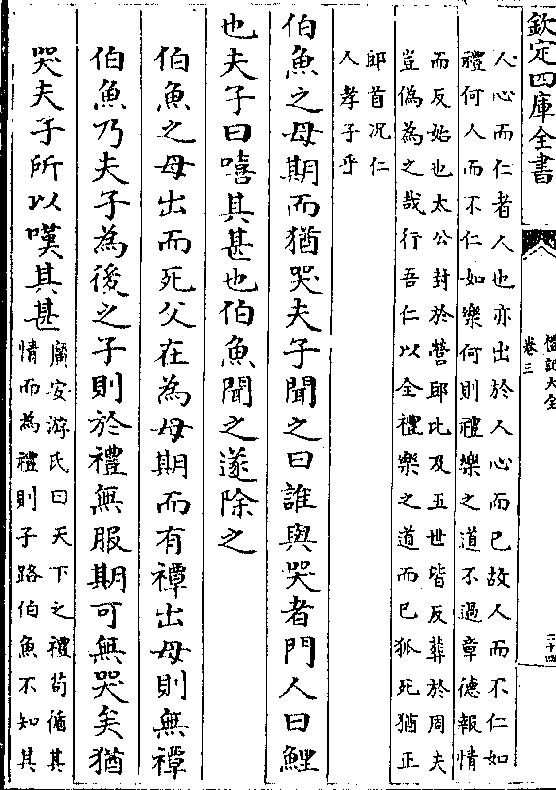 欽定四庫全書
禮記大全
卷三
二十四
人心而仁者人也亦出於人心而已故人而不仁如
禮何人而不仁如樂何則禮樂之道不過章德報情
而反始也太公封於營丘比及五世皆反葬於周夫
豈偽為之哉行吾仁以全禮樂之道而已狐死猶正
邱首况仁
人孝子乎
伯魚之母期而猶哭夫子聞之曰誰與哭者門人曰鯉
也夫子曰嘻其甚也伯魚聞之遂除之
伯魚之母出而死父在為母期而有禫出母則無禫
伯魚乃夫子為後之子則於禮無服期可無哭矣猶
哭夫子所以嘆其甚
廣安游氏曰天下之禮苟循其
情而為禮則子路伯魚不知其